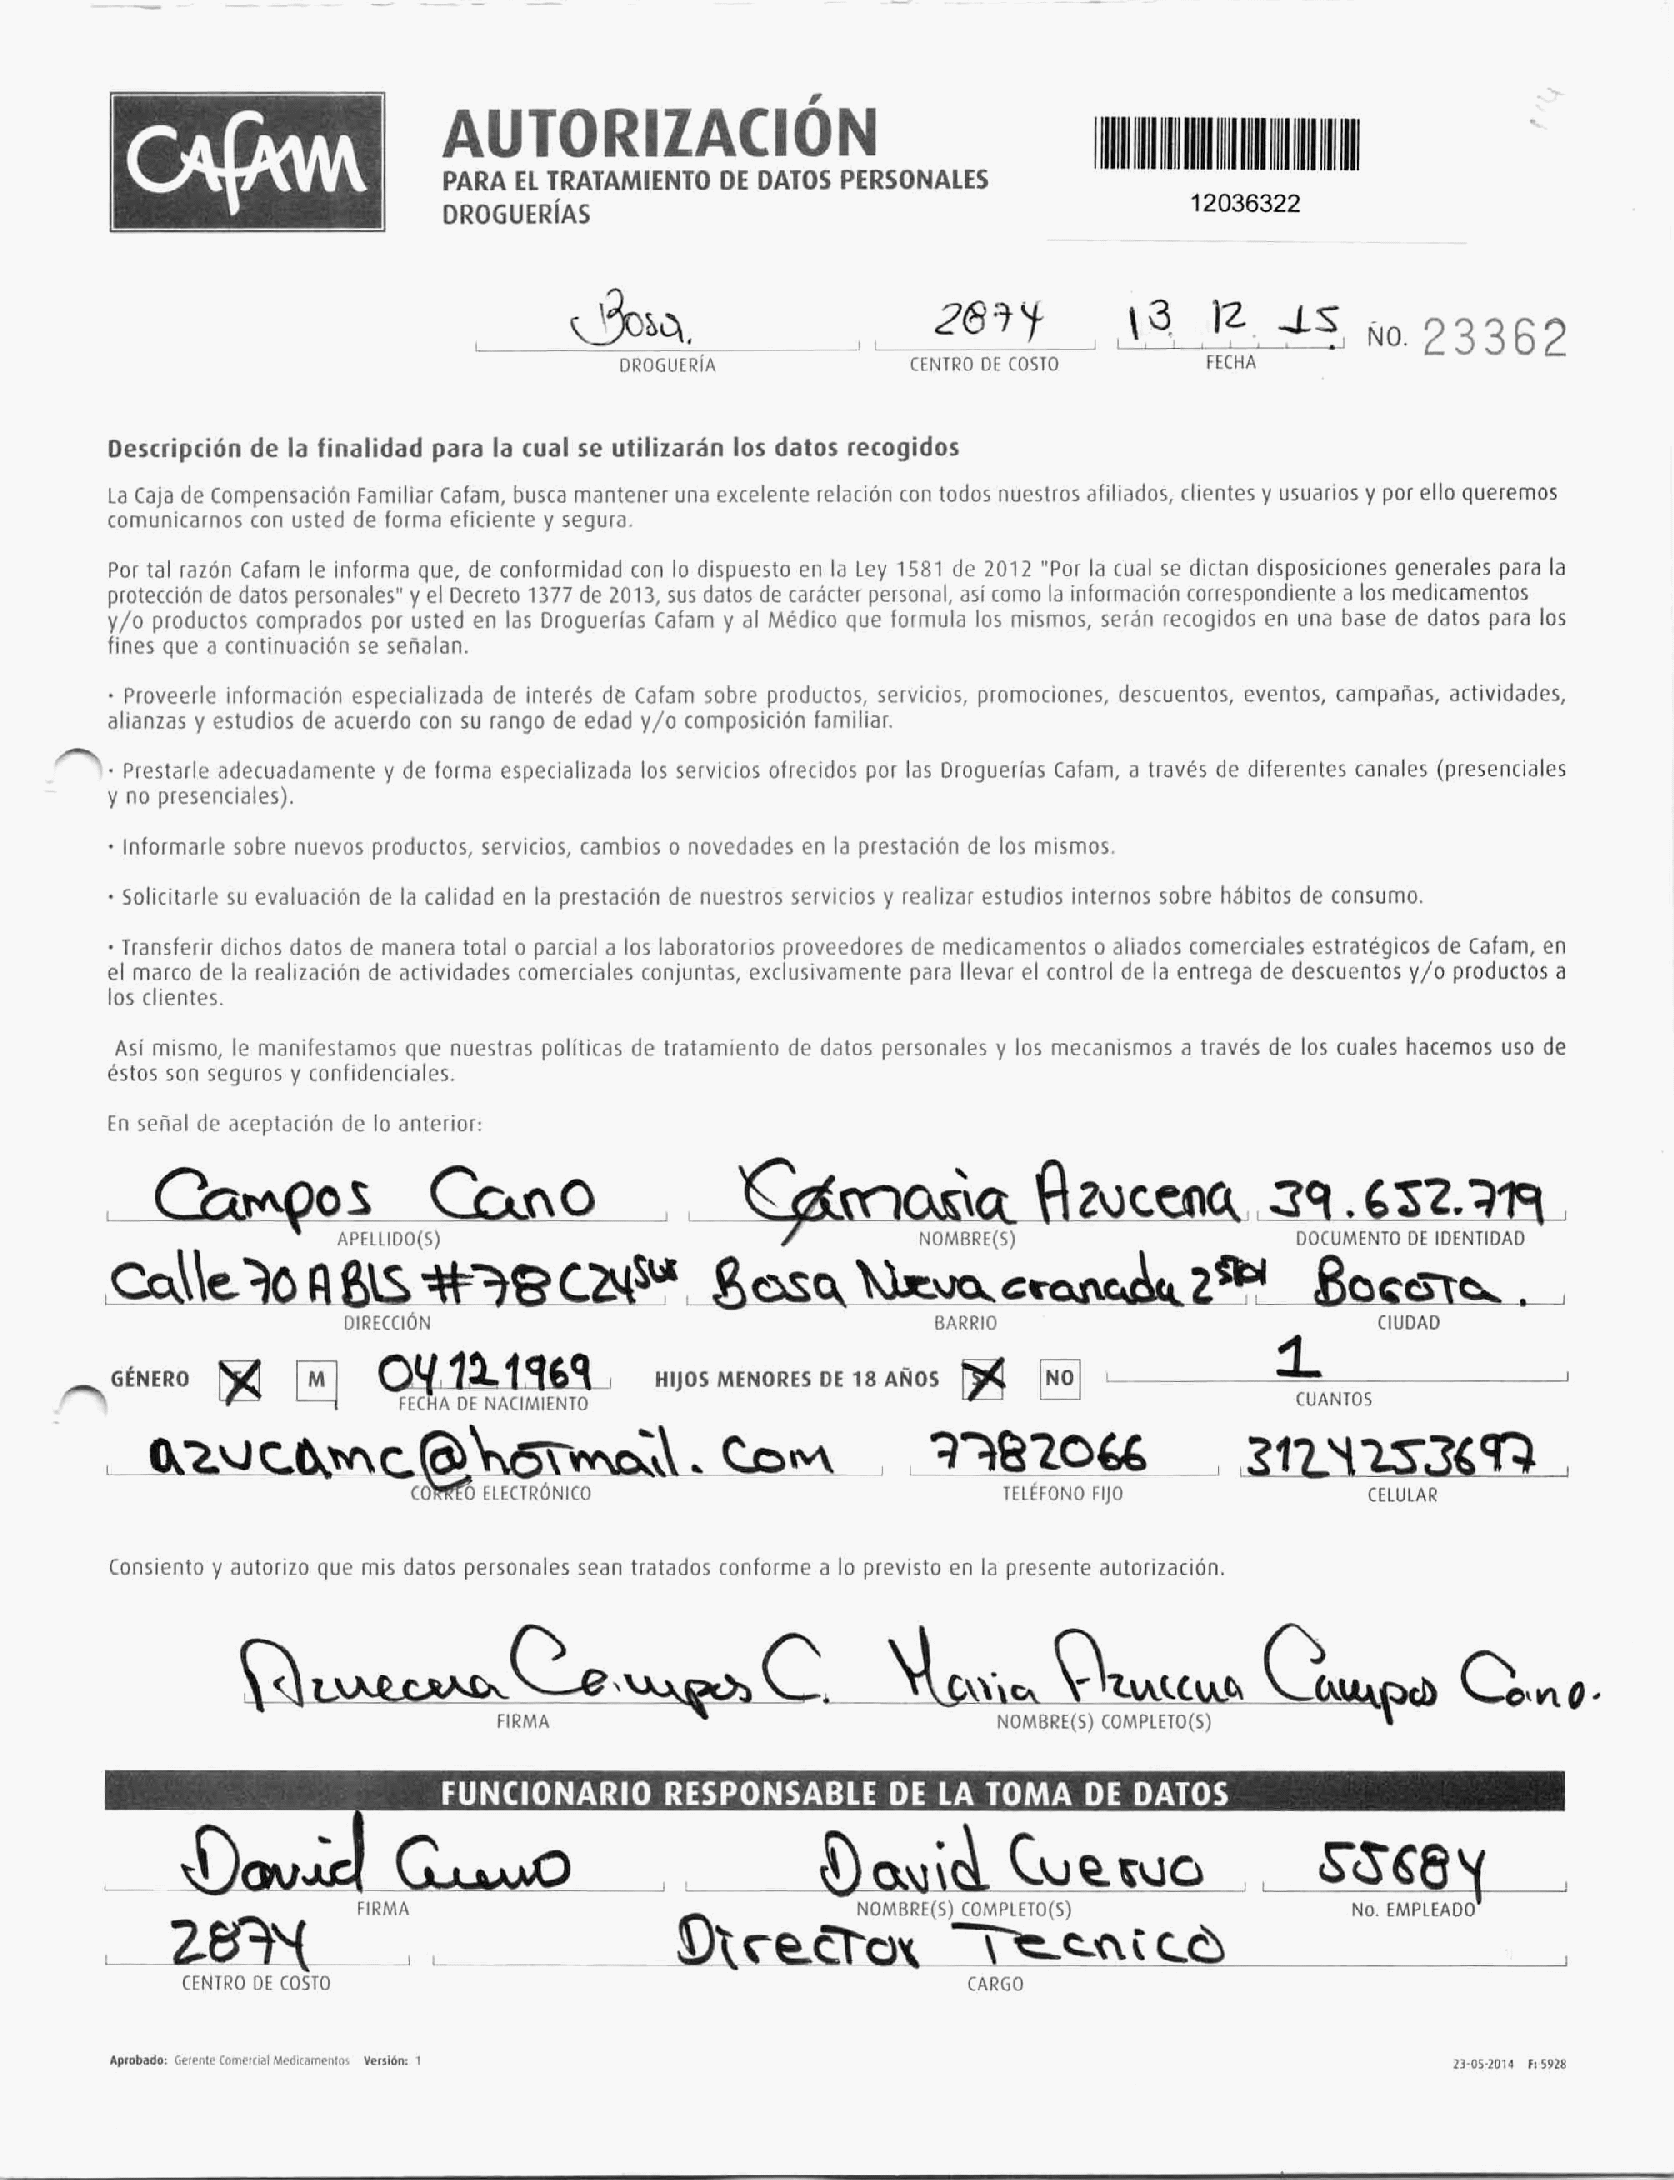 CAFAM
AUTORIZACIÓN
PARA EL TRATAMIENTO DE DATOS PERSONALES
DROGUERÍAS
12036322
Bosa. 2874 13 12 15 ÑO. 23362
DROGUERÍA CENTRO DE COSTO FECHA
Descripción de la finalidad para la cual se utilizarán los datos recogidos
La Caja de Compensación Familiar Cafam, busca mantener una excelente relación con todos nuestros afiliados, clientes y usuarios y por ello queremos
comunicarnos con usted de forma eficiente y segura.
Por tal razón Cafam le informa que, de conformidad con lo dispuesto en la Ley 1581 de 2012 "Por la cual se dictan disposiciones generales para la
protección de datos personales" y el Decreto 1377 de 2013, sus datos de carácter personal, así como la información correspondiente a los medicamentos
y/o productos comprados por usted en las Droguerías Cafam y al Médico que formula los mismos, serán recogidos en una base de datos para los
fines que a continuación se señalan.
· Proveerle información especializada de interés de Cafam sobre productos, servicios, promociones, descuentos, eventos, campañas, actividades,
alianzas y estudios de acuerdo con su rango de edad y/o composición familiar.
· Prestarle adecuadamente y de forma especializada los servicios ofrecidos por las Droguerías Cafam, a través de diferentes canales (presenciales
y no presenciales).
· Informarle sobre nuevos productos, servicios, cambios o novedades en la prestación de los mismos.
· Solicitarle su evaluación de la calidad en la prestación de nuestros servicios y realizar estudios internos sobre hábitos de consumo.
· Transferir dichos datos de manera total o parcial a los laboratorios proveedores de medicamentos o aliados comerciales estratégicos de Cafam, en
el marco de la realización de actividades comerciales conjuntas, exclusivamente para llevar el control de la entrega de descuentos y/o productos a
los clientes.
Así mismo, le manifestamos que nuestras políticas de tratamiento de datos personales y los mecanismos a través de los cuales hacemos uso de
éstos son seguros y confidenciales.
En señal de aceptación de lo anterior:
Campos Cano maria Azucena 39.652.719
APELLIDO(S) NOMBRE(S) DOCUMENTO DE IDENTIDAD
Calle 70 A BIS # 78 C 24 Sur Bosa Nueva Granada 2 Bogota.
DIRECCIÓN BARRIO CIUDAD
GÉNERO M 04 12 1969 HIJOS MENORES DE 18 AÑOS NO 1
FECHA DE NACIMIENTO CUANTOS
azucamc@hotmail.com 7782066 3124253697
CORREO ELECTRÓNICO TELÉFONO FIJO CELULAR
Consiento y autorizo que mis datos personales sean tratados conforme a lo previsto en la presente autorización.
Azucena Campos C. Maria Azucena Campos Cano.
FIRMA NOMBRE(S) COMPLETO(S)
FUNCIONARIO RESPONSABLE DE LA TOMA DE DATOS
David Cuervo David Cuervo 55684
FIRMA NOMBRE(S) COMPLETO(S) No. EMPLEADO
2874 Director Tecnico
CENTRO DE COSTO CARGO
Aprobado: Gerente Comercial Medicamentos Versión: 1 23-05-2014 F: 5928